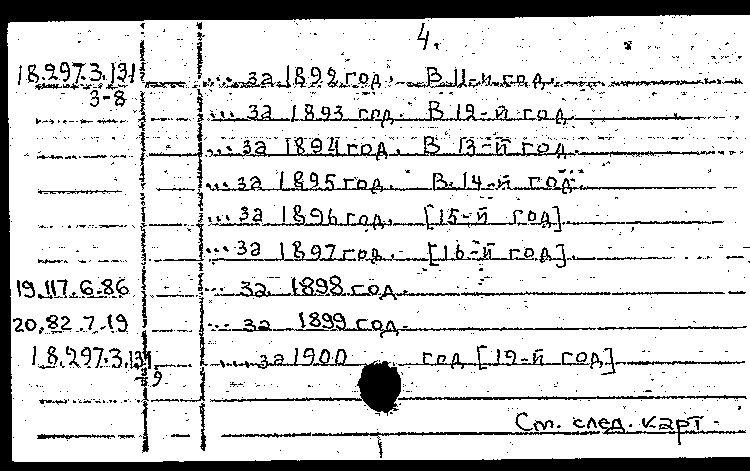 4.
18.297.3.131 ... за 1892 год. В 11-й год.
3-8
... за 1893 год. В 12-й год.
... за 1894 год. В 13-й год.
... за 1895 год. В 14-й год.
... за 1896 год. [15-й год].
... за 1897 год. [16-й год].
19.117.6.86 ... за 1898 год.
20.82.7.19 ... за 1899 год.
18.297.3.131 ... за 1900 год [19-й год]
-9
См. след. карт.